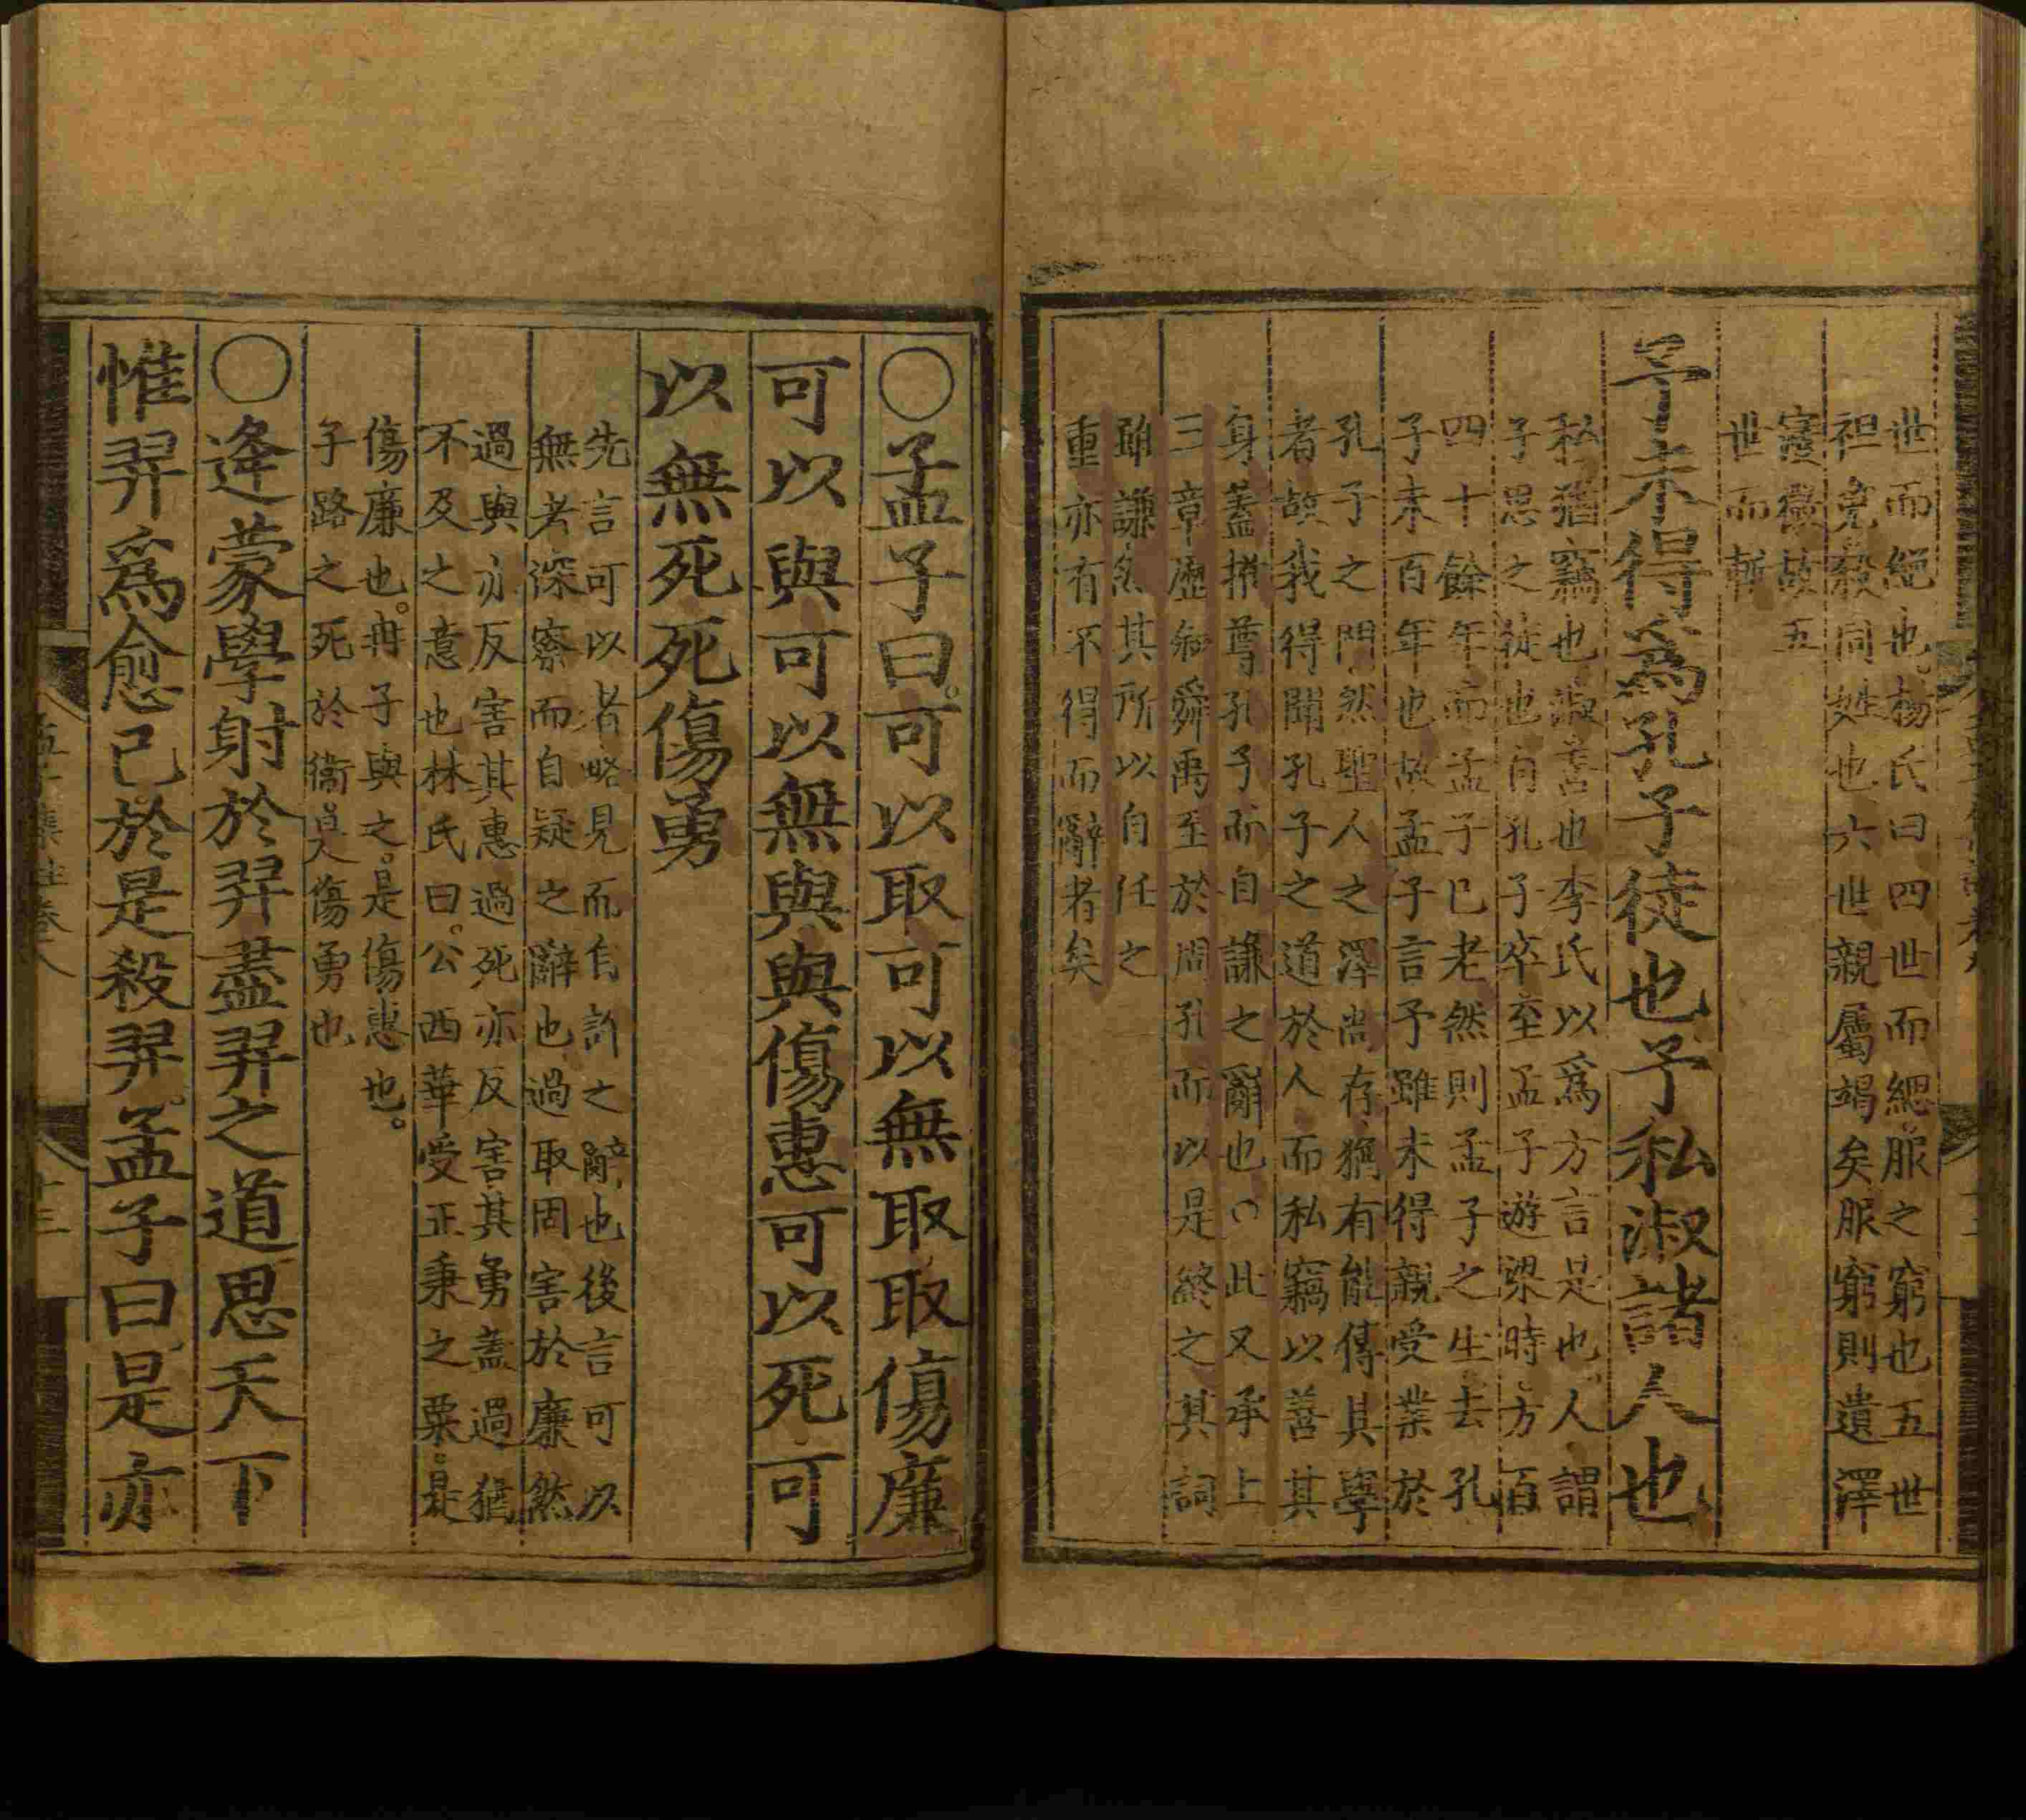 世而絕也楊氏曰四世而緦服之窮也五世
袒免殺同姓也六世親屬竭矣服窮則遺澤
寖微故五
世而斬
予未得爲孔子徒也予私淑諸人也
私猶竊也淑善也李氏以爲方言是也人謂
子思之徒也自孔子卒至孟子遊梁時方百
四十餘年而孟子已老然則孟子之生去孔
子未百年也故孟子言予雖未得親受業於
孔子之門然聖人之澤尚存猶有能傳其學
者故我得聞孔子之道於人而私竊以善其
身蓋推尊孔子而自謙之辭也○此又承上
三章歷敘舜禹至於周孔而以是終之其詞
雖謙然其所以自任之
重亦有不得而辭者矣
○孟子曰可以取可以無取取傷廉
可以與可以無與與傷惠可以死可
以無死死傷勇
先言可以者略見而自許之辭也後言可以
無者深察而自疑之辭也過取固害於廉然
過與亦反害其惠過死亦反害其勇蓋過猶
不及之意也林氏曰公西華受五秉之粟是
傷廉也冉子與之是傷惠也
子路之死於衛是傷勇也
○逄蒙學射於羿盡羿之道思天下
惟羿爲愈己於是殺羿孟子曰是亦
孟子集註卷八
十三